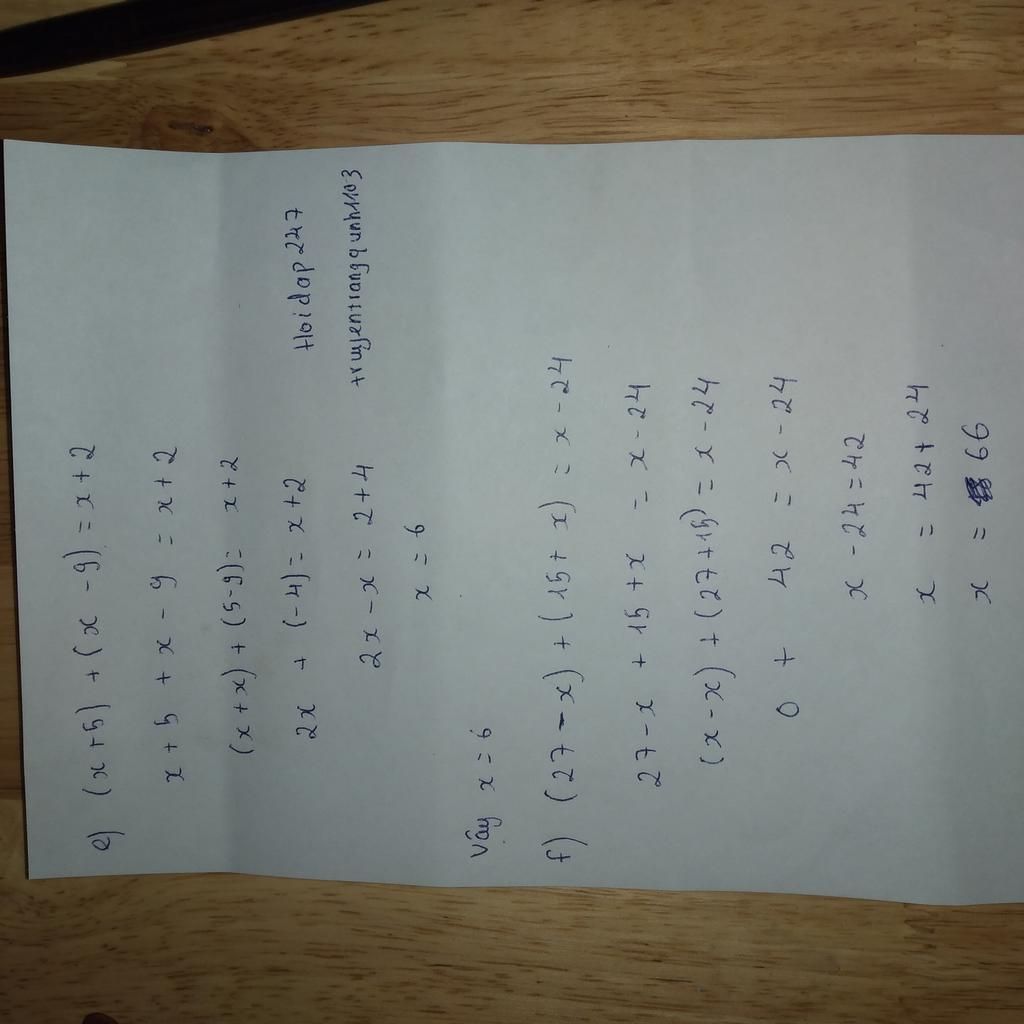 e) (x+5) + (x - 9) = x + 2
x + 5 + x - 9 = x + 2
(x + x) + (5-9) = x + 2
2x + (-4) = x + 2
Hoidap247
2x - x = 2 + 4
truyentrangquynh1103
x = 6
Vậy x = 6
f) (27 - x) + (15 + x) = x - 24
27 - x + 15 + x = x - 24
(x - x) + (27 + 15) = x - 24
0 + 42 = x - 24
x - 24 = 42
x = 42 + 24
x = 66